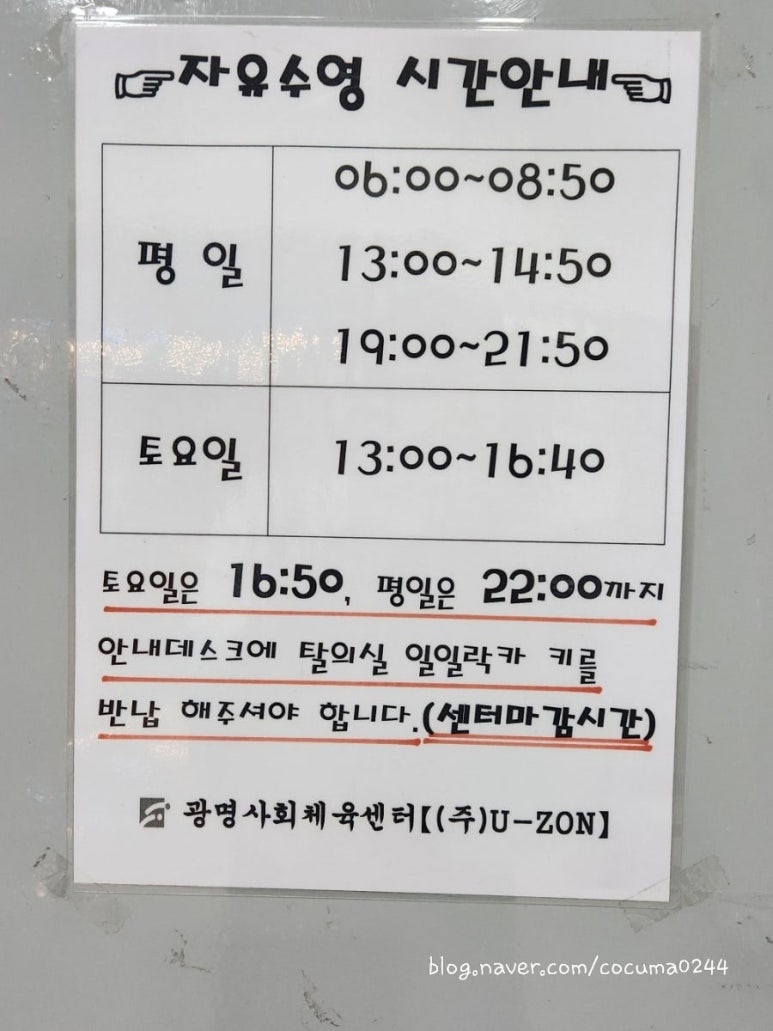 ☞자유수영 시간안내☜
06:00~08:50
평 일
13:00~14:50
19:00~21:50
토요일
13:00~16:40
토요일은 16:50, 평일은 22:00까지
안내데스크에 탈의실 일일락카 키를
반납 해주셔야 합니다.(센터마감시간)
광명사회체육센터【(주)U-ZON】
blog.naver.com/cocuma0244